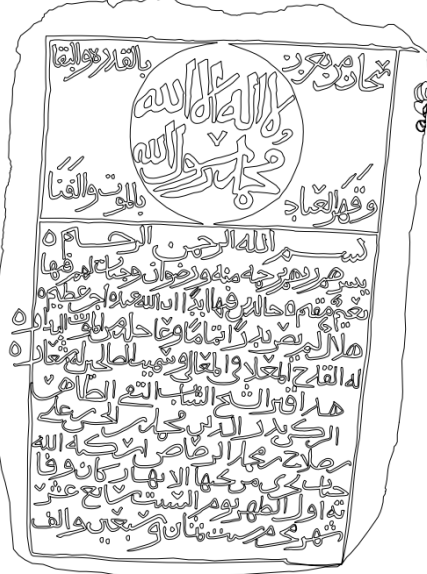 سبحان من تعزز بالقدرة والبقا
لا اله الا الله
محمد رسول الله
وقهر العباد بالموت والفنا
بسم الله الرحمن الرحيم
يبشرهم ربهم برحمة منه ورضوان وجنات لهم فيها
نعيم مقيم خالدين فيها ابدا ان الله عنده اجر عظيم
هلال لم يصر بدرا تماما وعاجله من الموت البدار
له القدح المعلا في المعالي وسيما الصالحين له شعار
هذا قبر الشيخ الشاب التقي الطاهر
الزكي بدر الدين محمد بن الحسن علي
بن صلاح بن محمد الرصاص اسكنه الله
جنات تجري من تحتها الانهار وكان وفا
ته اول الظهر يوم السبت سابع عشر
شهر محرم سنة ثمان وسبعين والف